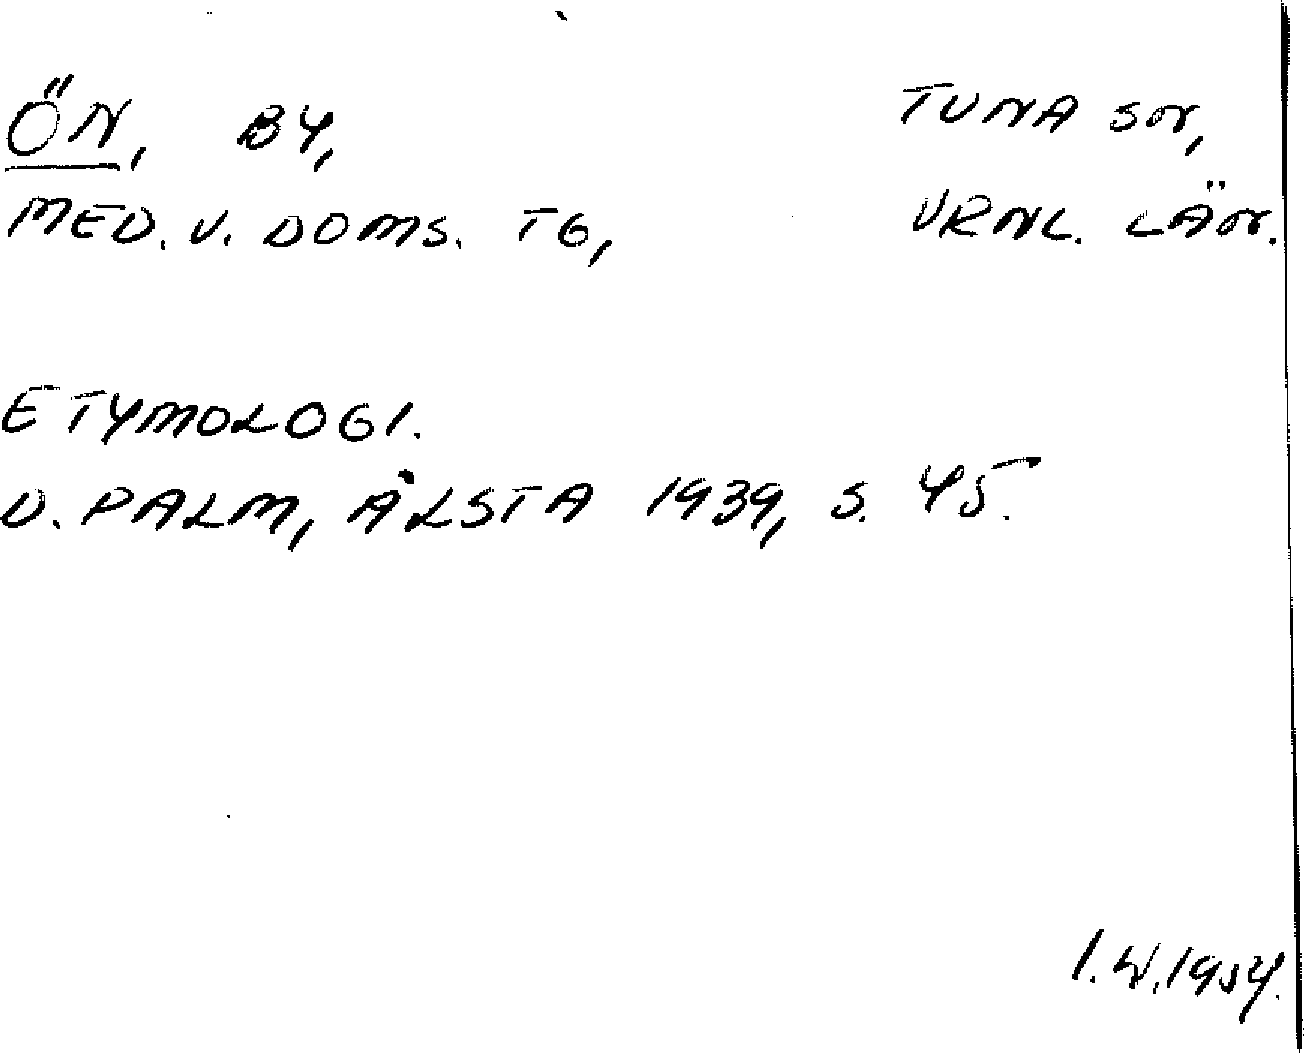 ÖN, BY, TUNA SN,
MED. V. DOMS. TG, VRNL. LÄN.
ETYMOLOGI.
D. PALM, ÅLSTA 1939, S. 45.
I.W.1954.